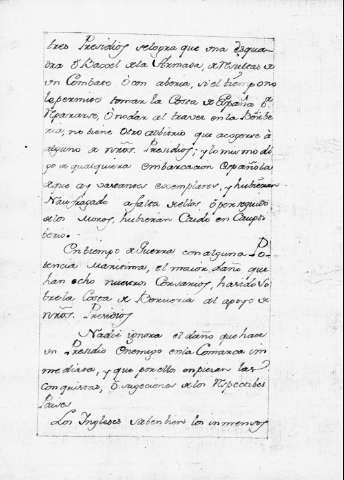 tres Presidios se logra que una esqua
dra ó Baxel de la Armada, de resultas de
un Combate ò con aberia, si el tiempo no
le permite tomar la Costa de España p.ª
repararse, ò no dar al traves en la Berbe
ria, no tiene otro advitrio que acogerse à
alguno de nŕos. Presidios; y lo mismo di
go de qualquiera embarcacion Española
de que ay bastantes exemplares, y hubieran
Naufragado a falta de ellos ò perseguido
de los Moros, hubieran Caido en Cauti
berio.
En tiempo de Guerras con alguna Po
tencia Maritima, el maior daño que
han echo nuestros Corsarios, ha sido so
bre la Costa de Berveria al apoyo de
nŕos. Presidios
Nadie ignora el daño que hace
un Presidio Enemigo en la Comarca im
mediata, y que por ello empiezan las
Conquistas, ò sugeciones de los respectibos
Paises
Los Ingleses saben bien los inmensos